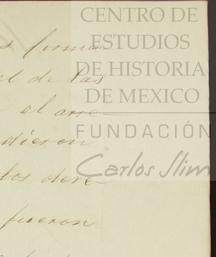 CENTRO DE
ESTUDIOS
DE HISTORIA
DE MEXICO
FUNDACIÓN
Carlos Slim
forma
el de las
el arre
dieron
tos dere
fueron